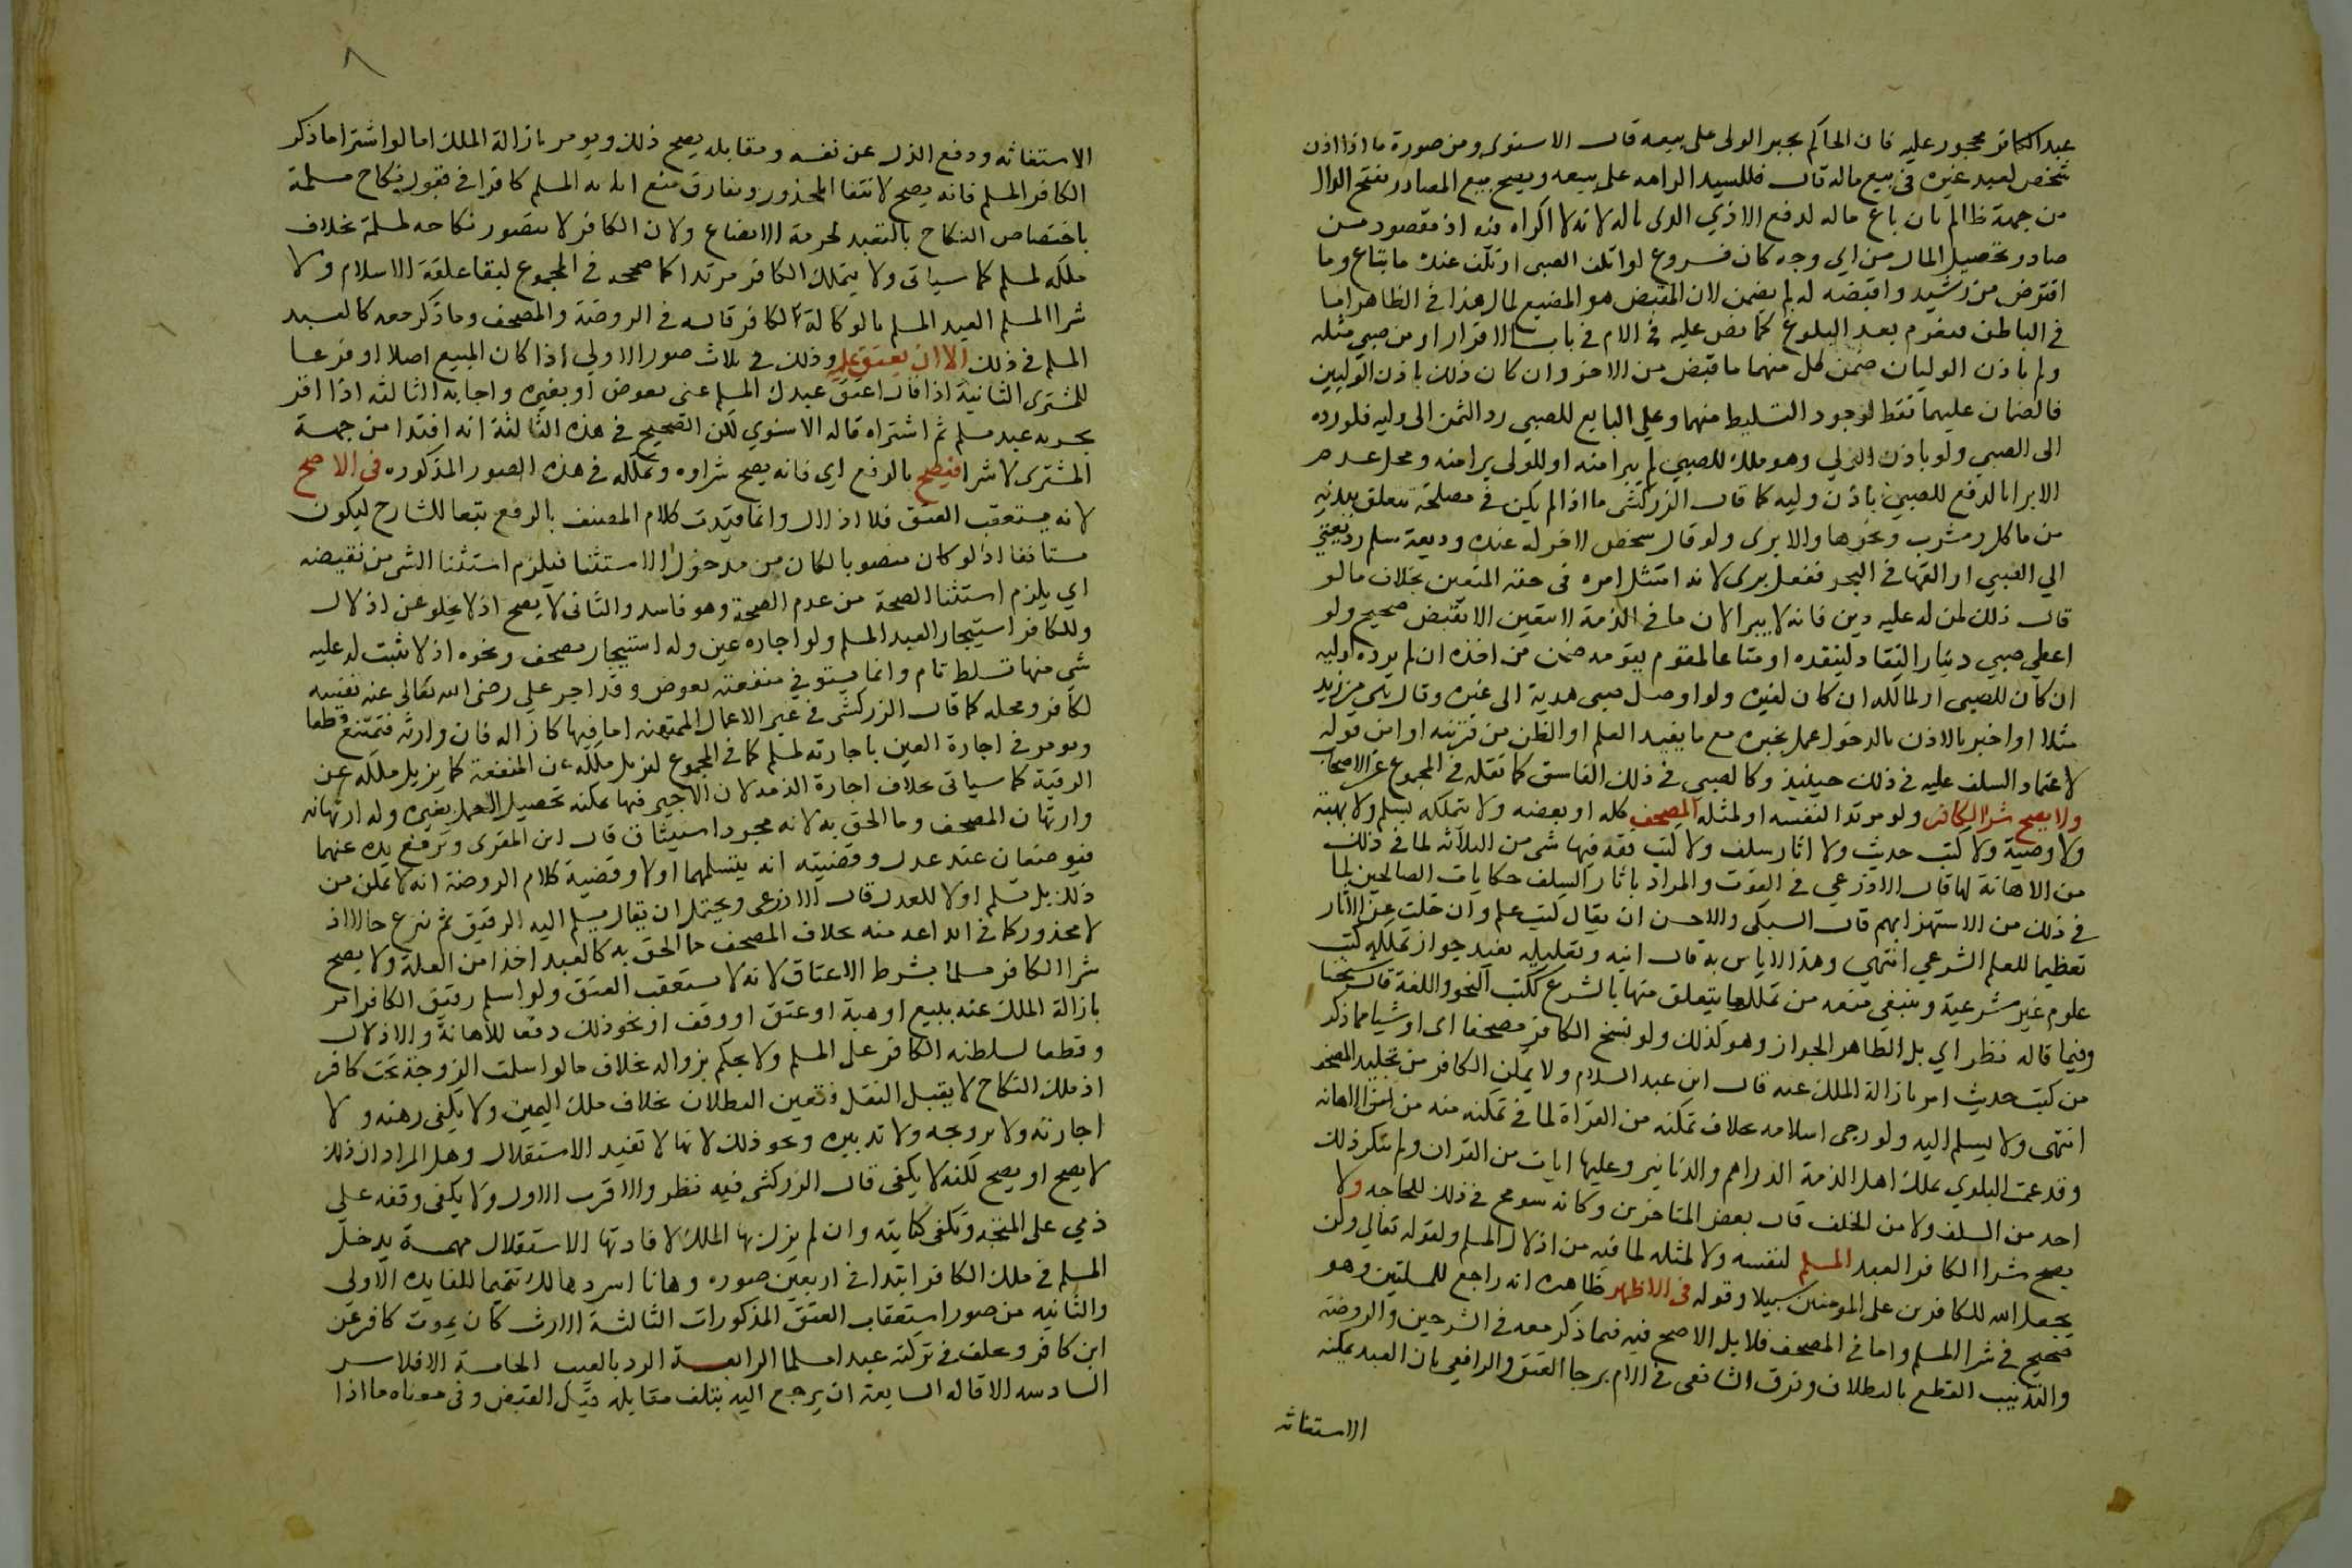 عبد الكافر محجور عليه فان الحاكم يجبر الولى على بيعه قال الاسنوى ومن صورة ما اذا اذن
شخص لعبد غيره فى بيع ماله قال فللسيد اكراهه على بيعه ويصح بيع المصادر بفتح الدال
من جهة ظالم بان باع ماله لدفع الاذي الذى ناله لانه لا اكراه فيه اذ مقصود من
صادر تحصيل المال من اي وجه كان فروع لو اتلف الصبي او تلف عنده ما يتاع وما
اقترض من رشيد واقبضه له لم يضمن لان المقبض هو المضيع لماله هذا فى الظاهر اما
فى الباطن فيغرم بعد البلوغ كما نص عليه فى الام فى باب الاقرار او من صبي مثله
ولم ياذن الوليان ضمن كل منهما ما قبض من الاخر وان كان ذلك باذن الوليين
فالضمان عليهما فقط لوجود التسليط منهما وعلى البايع للصبي رد الثمن الى وليه فلو رده
الى الصبي ولو باذن الولي وهو ملك للصبي لم يبرا منه او للولي برا منه ومحل عدم
الابرا بالدفع للصبي باذن وليه كما قال الزركشى ما اذا لم يكن فى مصلحة تتعلق ببدنه
من ماكل ومشرب ونحوها والا برى ولو قال شخص لاخر له عنده وديعة سلم وديعتى
الي الصبي او القها فى البحر ففعل برى لانه امتثل امره فى حقه المتعين بخلاف ما لو
قال ذلك لمن له عليه دين فانه لا يبرا لان ما فى الذمة لا يتعين الا بقبض صحيح ولو
اعطى صبي دينارا لنقاد لينقده او متاعا لمقوم يقومه ضمن من اخذه ان لم يرده لوليه
ان كان للصبي او لمالكه ان كان لغيره ولو اوصل صبي هدية الى غيره وقال هي من زيد
مثلا او اخبر بالاذن بالدخول عمل بخبره مع ما يفيد العلم او الظن من قرينه او امن قوله
لاعتماد السلف عليه فى ذلك حينيذ وكالصبي فى ذلك الفاسق كما نقله فى المجموع عن الاصحاب
ولا يصح شرا الكافر ولو مرتدا لنفسه او لمثله المصحف كله او بعضه ولا يتملكه بسلم ولا بهبة
ولا وصية ولا كتب حديث ولا اثار سلف ولا كتب فقه فيها شى من الثلاثه لما فى ذلك
من الاهانة لها قال الاذرعي فى القوت والمراد باثار السلف حكايات الصالحين لما
فى ذلك من الاستهزا بهم قال السبكى والاحسن ان يقال كتب علم وان خلت عن الاثار
تعظيما للعلم الشرعي انتهى وهذا لا باس به قال ابنه وتعليله يفيد جواز تملكه كتب
علوم غير شرعية وينبغي منعه من تملك ما يتعلق منها بالشرع ككتب النحو واللغة قال شيخنا
وفيما قاله نظر اي بل الظاهر الجواز وهو كذلك ولو نسخ الكافر مصحفا اى او شيا مما ذكر
من كتب حديث امر بازالة الملك عنه قال ابن عبد السلام ولا يمكن الكافر من تجليد المصحف
انتهى ولا يسلم اليه ولو رجى اسلامه بخلاف تمكنه من القراة لما فى تمكنه منه من الاهانه
وقد عمت البلوي بملك اهل الذمة الدراهم والدنانير وعليها ايات من القران ولم ينكر ذلك
احد من السلف ولا من الخلف قال بعض المتاخرين وكانه سومح فى ذلك للحاجه ولا
يصح شرا الكافر العبد المسلم لنفسه ولا لمثله لما فيه من اذلال المسلم ولقوله تعالى ولن
يجعل الله للكافرين على المومنين سبيلا وقوله فى الاظهر ظاهره انه راجع للمسئلتين وهو
صحيح فى شرا المسلم واما فى المصحف فلا بل الاصح فيه فيما ذكر معه فى الشرحين والروضة
والتذنيب القطع بالبطلان وفرق الشافعى فى الام برجا العتق والرافعي بان العبد يمكنه
الاستغاثه
٨
الاستغاثه ودفع الذل عن نفسه ومقابله يصح ذلك ويومر بازالة الملك اما لو اشترا ما ذكر
الكافر لمسلم فانه يصح لانتفا المحذور ويفارق منع انابه المسلم كافرا فى قبول نكاح مسلمة
باختصاص النكاح بالتعبد لحرمة الابضاع ولان الكافر لا يتصور نكاحه لمسلمة بخلاف
ملكه لمسلم كما سياتى ولا يتملك الكافر مرتدا كما صححه فى المجموع لبقا علقة الاسلام ولا
شرا المسلم العبد المسلم بالوكالة لكافر قاله فى الروضة والمصحف وما ذكر معه كالعبد
المسلم فى ذلك الا ان يعتق عليه وذلك فى ثلاث صور الاولى اذا كان المبيع اصلا او فرعا
للمشترى الثانية اذا قال اعتق عبدك المسلم عنى بعوض او بغيره واجابه الثالثه اذا اقر
بحريه عبد مسلم ثم اشتراه قاله الاسنوي لكن الصحيح فى هذه الثالثة انه افتدا من جهة
المشترى لا شرا فيصح بالرفع اى فانه يصح شراوه وتملكه فى هذه الصور المذكوره فى الاصح
لانه يستعقب العتق فلا اذلال وانما قيدت كلام المصنف بالرفع تبعا للشارح ليكون
مستانفا اذ لو كان منصوبا لكان من مدخول الاستثنا فيلزم استثنا الشى من نقيضه
اي يلزم استثنا الصحة من عدم الصحة وهو فاسد والثانى لا يصح اذ لا يخلو عن اذلال
وللكافر استيجار العبد المسلم ولو اجاره عين وله استيجار مصحف ونحوه اذ لا يثبت له عليه
شى منها تسلط تام وانما يستوفى منفعته بعوض وقد اجر علي رضى الله تعالى عنه نفسه
لكافر ومحله كما قال الزركشى فى غير الاعمال الممتهنه اما فيها كازاله فان وارثه فتمتنع قطعا
ويومر فى اجارة العين باجارته لمسلم كما فى المجموع ليزيل ملكه عن المنفعة كما يزيل ملكه عن
الرقبة كما سياتى بخلاف اجارة الذمه لان الاجير فيها يمكنه تحصيل العمل بغيره وله ارتهانه
وارتهان المصحف وما الحق به لانه مجرد استيثاق قال ابن المقرى وترفع يده عنهما
فيوضعان عند عدل وقضيته انه يتسلمهما اولا وقضية كلام الروضة انه لا يمكن من
ذلك بل يسلم اولا للعدل قال الاذرعى ويحتمل ان يقال يسلم اليه الرقيق ثم ينزع حالا اذ
لا محذور كما فى ايداعه منه بخلاف المصحف وما الحق به كالعبد اخذا من العلة ولا يصح
شرا الكافر مسلما بشرط الاعتاق لانه لا يستعقب العتق ولو اسلم رقيق الكافر امر
بازالة الملك عنه ببيع او هبة او عتق او وقف او نحو ذلك دفعا للاهانة والاذلال
وقطعا لسلطنه الكافر على المسلم ولا يحكم بزواله بخلاف ما لو اسلمت الزوجة تحت كافر
اذ ملك النكاح لا يقبل النقل فتعين البطلان بخلاف ملك اليمين ولا يكفى رهنه ولا
اجارته ولا تزويجه ولا تدبيره ونحو ذلك لانها لا تفيد الاستقلال وهل المراد ان ذلك
لا يصح او يصح لكنه لا يكفى قال الزركشى فيه نظر والاقرب الاول ولا يكفى وقفه على
ذمي على المتجه وتكفى كتابته وان لم يزل بها الملك لافادتها الاستقلال مهمة يدخل
المسلم فى ملك الكافر ابتدا فى اربعين صوره وهانا اسردها لك تتميما للفايده الاولى
والثانيه من صور استعقاب العتق المذكورات الثالثة الارث كان يموت كافر عن
ابن كافر ويخلف فى تركته عبدا مسلما الرابعة الرد بالعيب الخامسة الافلاس
السادسه الاقاله السابعة ان يرجع اليه بتلف مقابله قبل القبض وفى معناه ما اذا